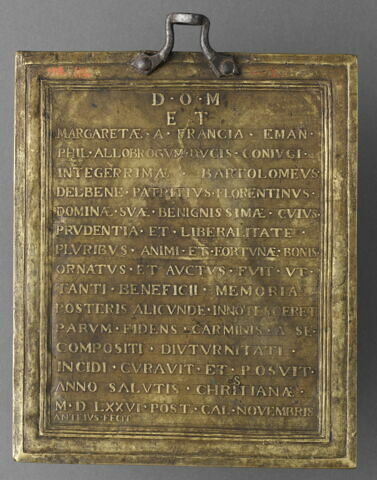 D·O·M
ET
MARGARETÆ·A·FRANCIA·EMAN·
PHIL·ALLOBROGVM·DVCIS·CONIVGI·
INTEGERRIMÆ·BARTOLOMEVS·
DELBENE·PATRITIVS·FLORENTINVS·
DOMINÆ·SVÆ·BENIGNISSIMÆ·CVIVS·
PRVDENTIA·ET·LIBERALITATE·
PLVRIBVS·ANIMI·ET·FORTVNÆ·BONIS·
ORNATVS·ET·AVCTVS·FVIT·VT·
TANTI·BENEFICII·MEMORIA·
POSTERIS·ALICVNDE·INNOTESCERET
PARVM·FIDENS·CARMINIS·A·SE·
COMPOSITI·DIVTVRNITATI·
INCIDI·CVRAVIT·ET·POSVIT·
ANNO·SALVTIS·CHRISTIANÆ·
M·D·LXXVI·POST·CAL·NOVEMBRIS
ANTEIVS·FECIT·